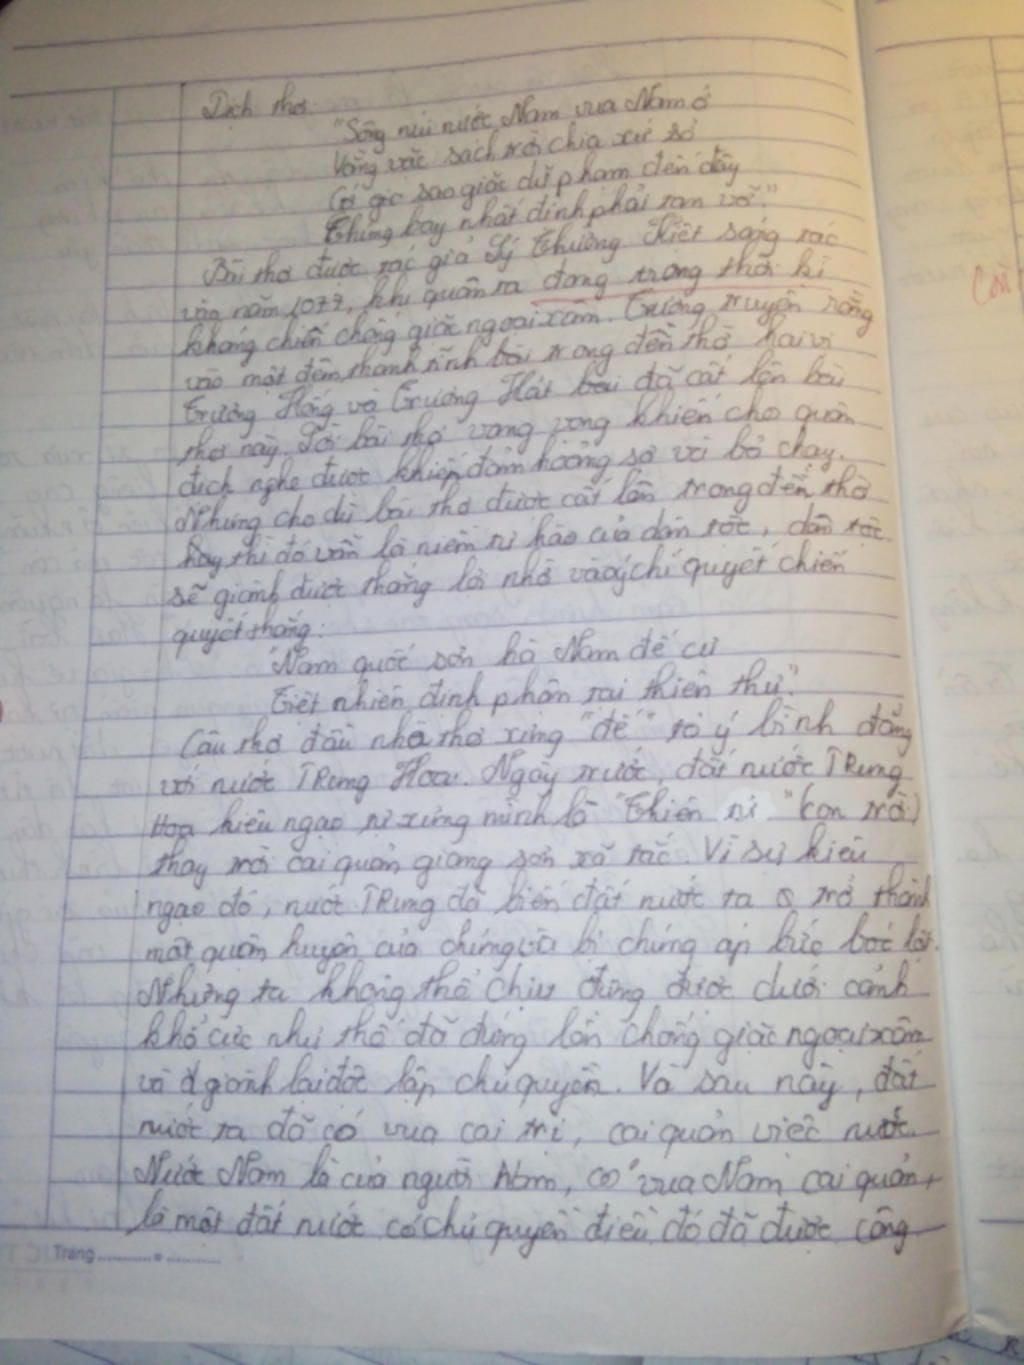 Dịch thơ:
"Sông núi nước Nam vua Nam ở
Vằng vặc sách trời chia xứ sở
Cớ gì sao giặc dữ phạm đến đây
Chúng bay nhất định phải tan vỡ."
Bài thơ được tác giả Lý Thường Kiệt sáng tác
vào năm 1077, khi quân ta đang trong thời kì
kháng chiến chống giặc ngoại xâm. Tương truyền rằng
vào một đêm thanh tĩnh bài trong đền thờ hai vị
Trương Hống và Trương Hát bài đã cất lên bài
thơ này. Lời bài thơ vang vọng khiến cho quân
địch nghe được khiếp đảm hoảng sợ và bỏ chạy.
Nhưng cho dù bài thơ được cất lên trong đền thờ
hay thì đó vẫn là niềm tự hào của dân tộc, dân tộc
sẽ giành được thắng lợi nhờ vào ý chí quyết chiến
quyết thắng:
"Nam quốc sơn hà Nam đế cư
Tiệt nhiên định phận tại thiên thư."
Câu thơ đầu nhà thơ xưng "đế" tỏ ý bình đẳng
với nước TRung Hoa. Ngày trước, đất nước TRung
Hoa kiêu ngạo tự xưng mình là "Thiên tử" (con trời)
thay trời cai quản giang sơn xã tắc. Vì sự kiêu
ngạo đó, nước TRung đã biến đất nước ta trở thành
một quận huyện của chúng và bị chúng áp bức bóc lột.
Nhưng ta không thể chịu đựng được dưới cảnh
khổ cực như thế đã đứng lên chống giặc ngoại xâm
và giành lại độc lập chủ quyền. Và sau này, đất
nước ta đã có vua cai trị, cai quản việc nước.
Nước Nam là của người Nam, có vua Nam cai quản,
là một đất nước có chủ quyền điều đó đã được công
Trang
Còn